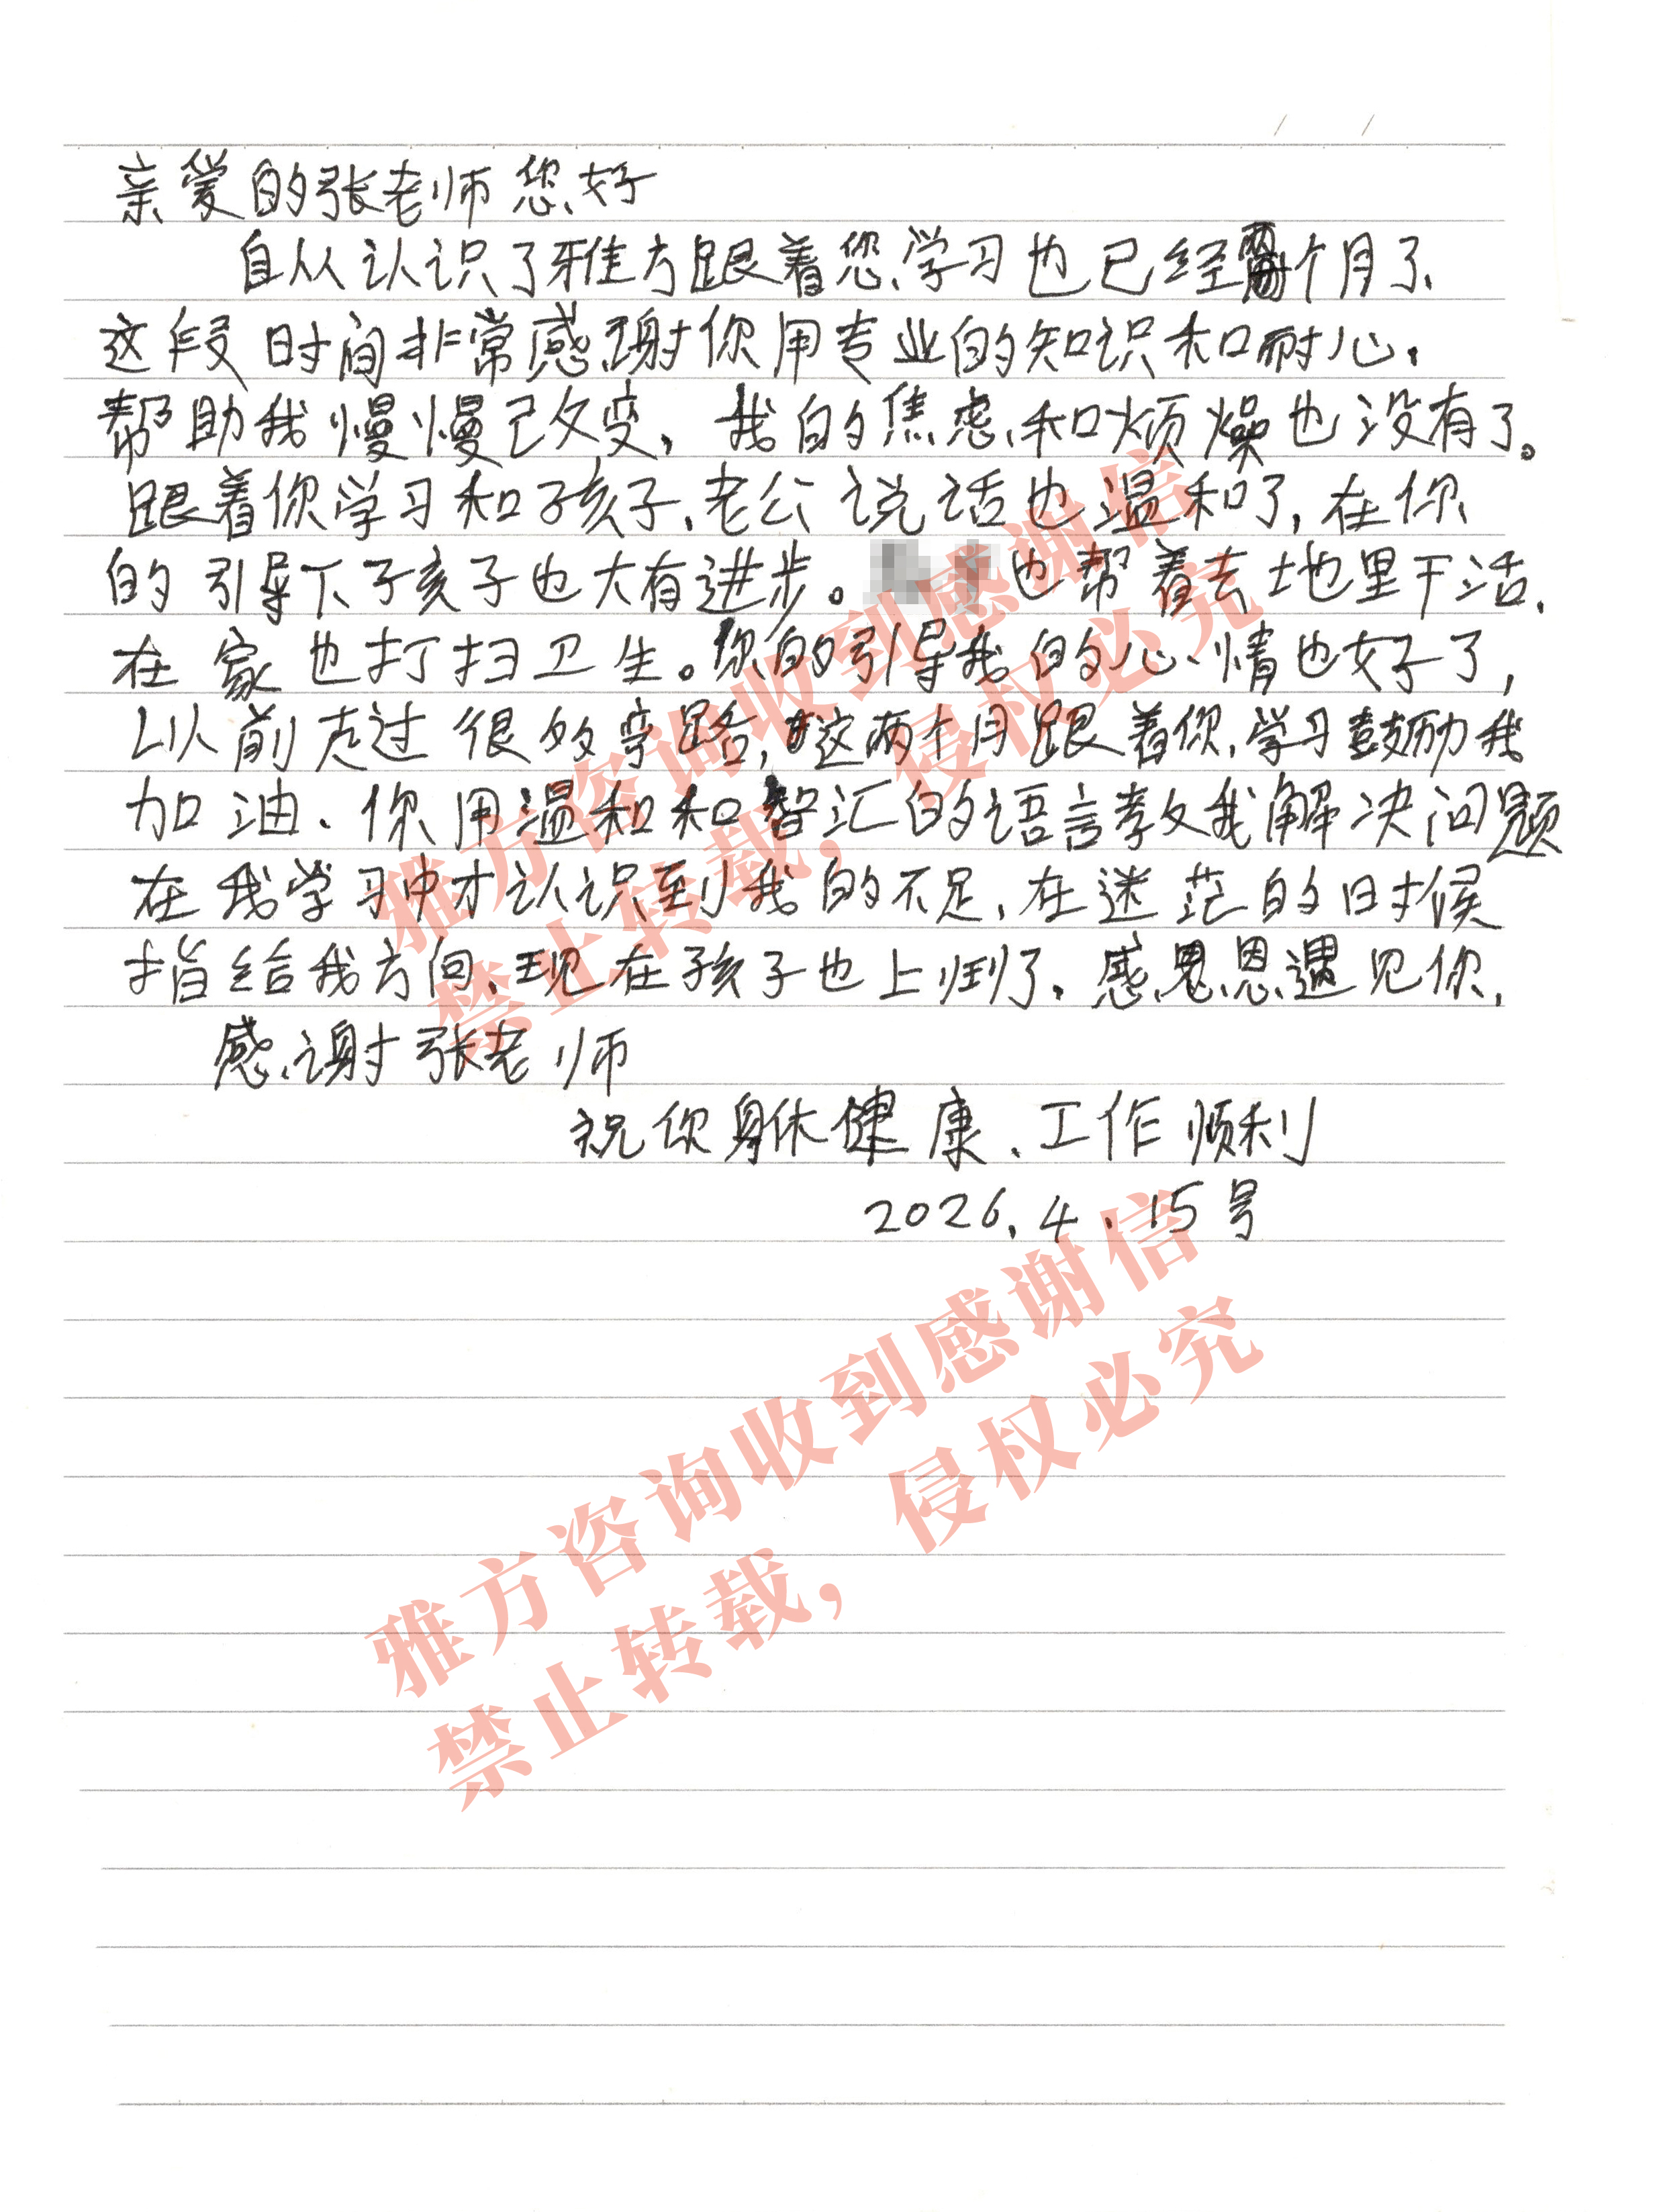 亲爱的张老师您好
自从认识了雅方跟着您学习也已经两个月了、
这段时间非常感谢你用专业的知识和耐心,
帮助我慢慢改变,我的焦虑和烦燥也没有了。
跟着你学习和孩子、老公说话也温和了,在你
的引导下孩子也大有进步。也帮着去地里干活、
在家也打扫卫生。你的引导我的心情也好了,
以前走过很多弯路,这两个月跟着你学习鼓励我
加油、你用温和和智汇的语言教我解决问题
在我学习中才认识到我的不足、在迷茫的时候
指给我方向、现在孩子也上班了。感恩遇见你,
感谢张老师
祝你身体健康、工作顺利
2026.4.15号
雅方咨询收到感谢信
禁止转载,侵权必究
雅方咨询收到感谢信
禁止转载,侵权必究